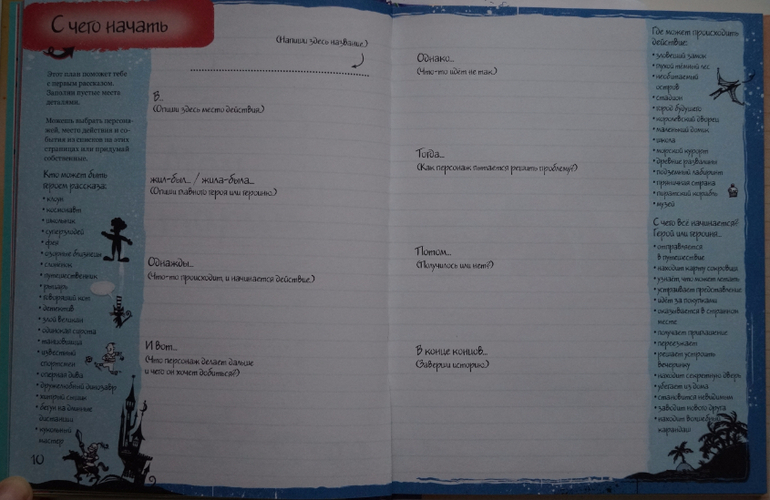 С чего начать
Этот план поможет тебе
с первым рассказом.
Заполни пустые места
деталями.
Можешь выбрать персона-
жей, место действия и со-
бытия из списков на этих
страницах или придумай
собственные.
Кто может быть
героем рассказа:
• клоун
• космонавт
• школьник
• суперзлодей
• фея
• озорные близнецы
• слонёнок
• путешественник
• рыцарь
• говорящий кот
• детектив
• злой великан
• одинокая сирота
• известный
спортсмен
• оперная дива
• дружелюбный динозавр
• хитрый
• бегун на длинные
дистанции
мастер
10
(Напиши здесь название)
В...
(Опиши здесь место действия.)
жил-был... / жила-была...
(Опиши главного героя или героиню.)
Однажды...
(Что-то происходит, и начинается действие.)
И вот...
(Что персонаж делает дальше
и чего он хочет добиться?)
Однако...
(Что-то идёт не так.)
Тогда...
(Как персонаж пытается решить проблему?)
Потом...
(Получилось или нет?)
В конце концов...
(Заверши историю.)
Где может происходить
действие:
• зловещий замок
• глухой тёмный лес
• необитаемый
остров
• стадион
• город будущего
• королевский дворец
• маленький домик
• школа
• морской курорт
• древние развалины
• подземный лабиринт
• пряничная страна
• пиратский корабль
• музей
С чего всё начинается?
Герой или героиня...
• отправляется
в путешествие
• находит карту сокровищ
• узнаёт, что может летать
• устраивает представление
• идёт за покупками
• оказывается в странном
месте
• получает приглашение
• переезжает
• решает устроить
вечеринку
• находит секретную дверь
• убегает из дома
• становится невидимым
• заводит нового друга
• находит волшебный
карандаш